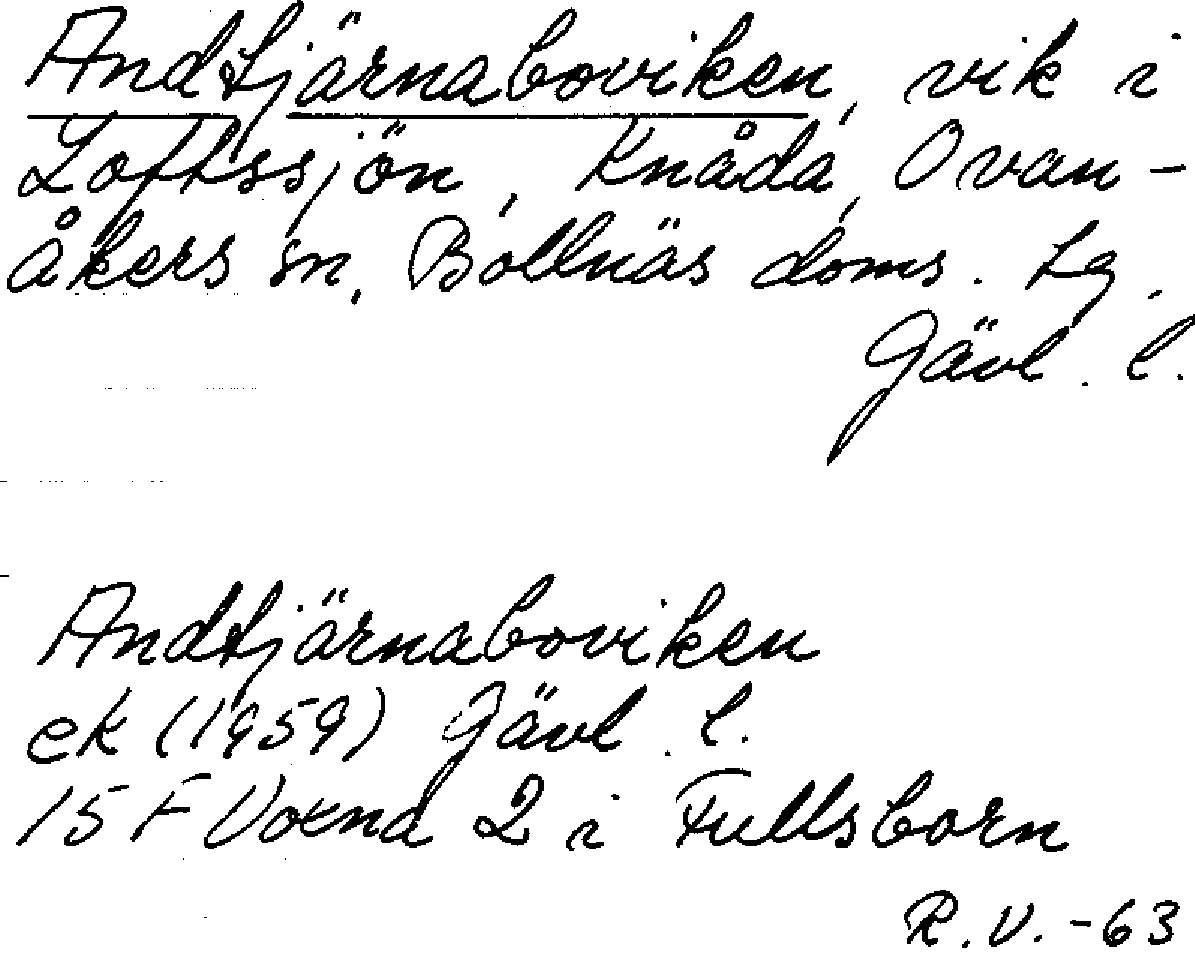 Andtjärnaboviken, vik i
Loftssjön, Knåda, Ovan-
åkers sn, Bollnäs doms. tg,
Gävl. l.
Andtjärnaboviken
ek (1959) Gävl. l.
15 F Voxna 2 i Fullsborn
R.V. -63